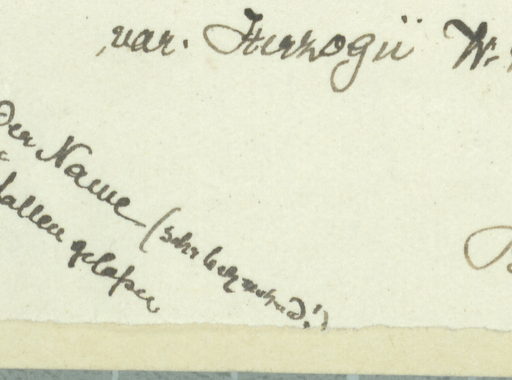 var. Herzogii W.
Der Name (sehr bezeichnend!)
fallen gelassen